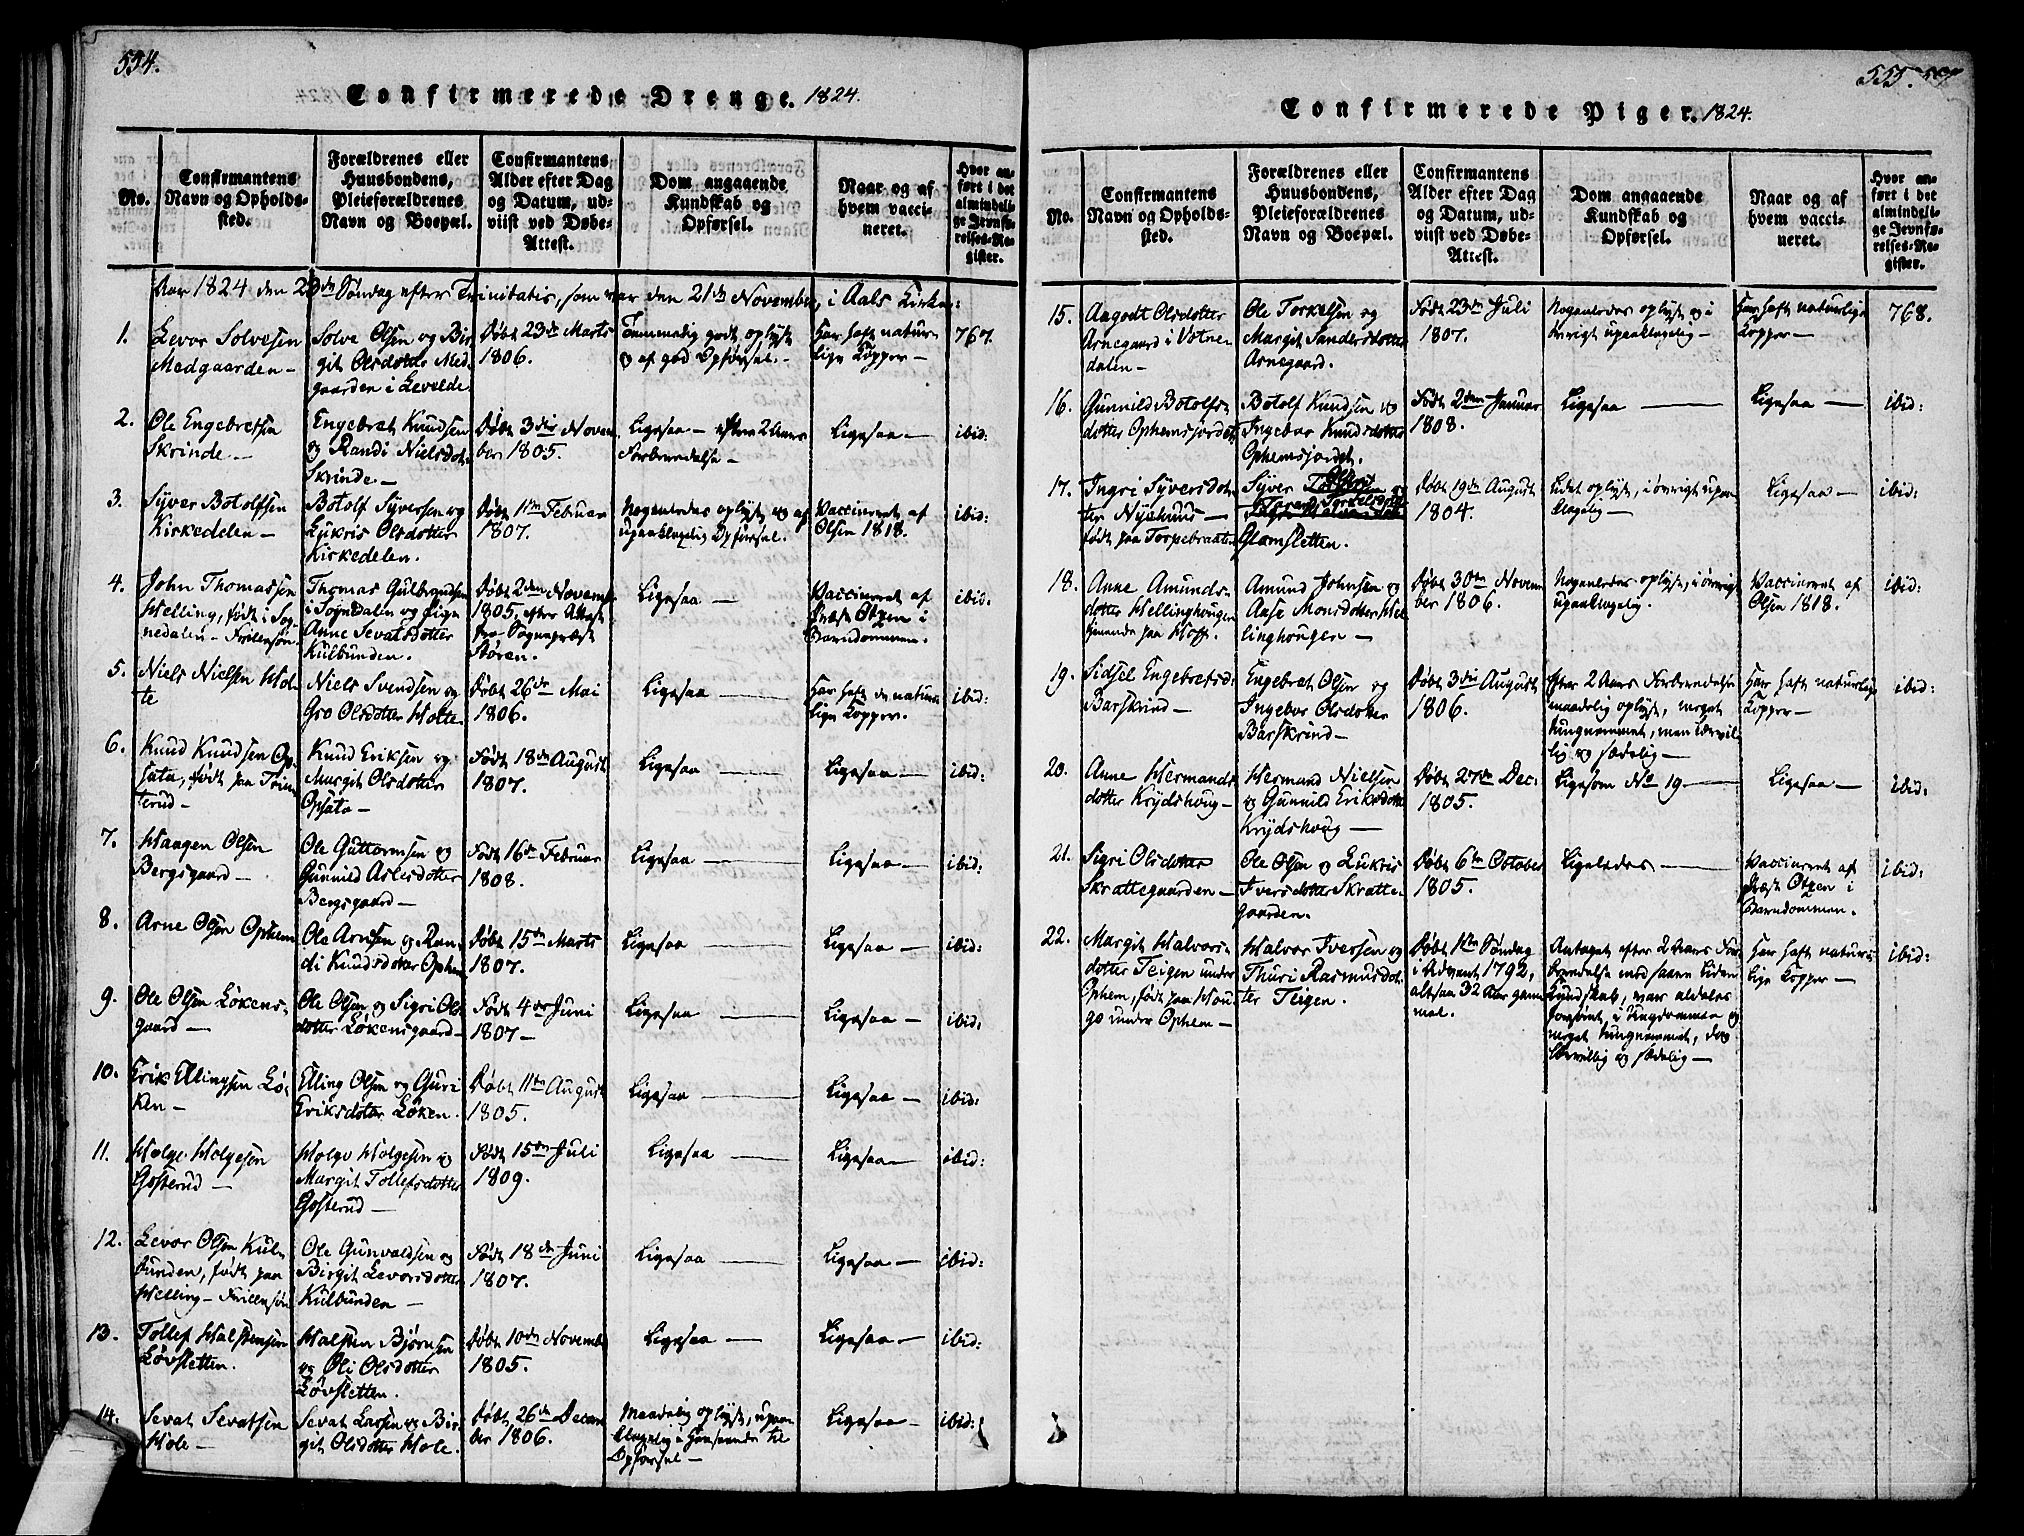 554.
Confirmerede Drenge. 1824.
No.
Confirmantens
Navn og Opholds-
sted.
Forældrenes eller
Huusbondens,
Pleieforældrenes
Navn og Boepæl.
Confirmantens
Alder efter Dag
og Datum, ud-
viist ved Døbe-
Attest.
Dom angaaende
Kundskab og
Opførsel.
Naar og af
hvem vacci-
neret.
Hvor an-
ført i det
almindeli-
ge Jevnfø-
relses-Re-
gister.
Aar 1824 den 23de Søndag efter Trinitatis, som var den 21de November, i Aals Kirke:
1.
Levor Solvesen
Medgaarden –
Solve Olsen og Bir-
git Olsdotter Med-
gaarden i Levelde.
Døbt 23de Marts
1806.
Temmelig godt oplyst
og af god Opførsel. –
Har haft natur-
lige Kopper –
767.
2.
Ole Engebretsen
Skrinde –
Engebret Knudsen
og Randi Nielsdot.
Skrinde. –
Døbt 3die Novem-
ber 1805.
Ligesaa – efter 2 Aars
Forberedelse –
Ligesaa –
ibid:
3.
Syver Botolfsen
Kirkedelen –
Botolf Syversen og
Lukris Olsdotter
Kirkedelen.
Døbt 11te Februar
1807.
Nogenledes oplyst og af
upaaklagelig Opførsel. –
Vaccineret af
Olsen 1818.
ibid:
4.
John Thomassen
Helling, født i Sog-
nedalen – Frillesøn
Thomas Gulbrandsen
i Sogndalen og Pige
Anne Sevatsdotter
Kulbunden.
Døbt 2den Novemb.
1805, efter Attest
fra Sognepræst
Støren.
Ligesaa –
Vaccineret af
Præst Otzen i
Barndommen.
ibid.
5.
Niels Nielsen Hol-
te
Niels Svendsen og
Gro Olsdotter Holte.
Døbt 26de Mai
1806.
Ligesaa –
Har haft de natur-
lige Kopper.
ibid:
6.
Knud Knudsen Op-
sata, født paa Trin-
terud –
Knud Eriksen og
Margit Olsdotter
Opsata –
Født 18de August
1807.
Ligesaa –
Ligesaa –
ibid:
7.
Haagen Olsen
Bergsgaard –
Ole Guttormsen og
Gunnild Aslesdotter
Bergsgaard –
Født 16de Februar
1808.
Ligesaa –
Ligesaa –
ibid:
8.
Arne Olsen Ophem
Ole Arnsen og Ran-
di Knudsdotter Ophem
Døbt 15de Marts
1807.
Ligesaa –
Ligesaa –
ibid:
9.
Ole Olsen Løkens-
gaard –
Ole Olsen og Sigri Ols-
dotter Løkensgaard –
Født 4de Juni
1807 –
Ligesaa –
Ligesaa –
ibid:
10.
Erik Ellingsen Lø-
ken –
Elling Olsen og Guri
Eriksdotter Løken.
Døbt 11te August
1805.
Ligesaa –
Ligesaa –
ibid:
11.
Holge Holgesen
Gosterud –
Holge Holgesen og
Margit Tollefsdotter
Gosterud –
Født 15de Juli
1809.
Ligesaa –
Ligesaa –
ibid:
12.
Levor Olsen Kul-
bunden, født paa
Helling – Frillesøn
Ole Gunvaldsen og
Birgit Levorsdotter
Kulbunden –
Født 18de Juni
1807.
Ligesaa –
Ligesaa –
ibid:
13.
Tollef Halstensen
Løvsletten.
Halsten Bjørnsen
og Oli Olsdotter
Løvsletten.
Døbt 10de Novembr
1805.
Ligesaa –
Ligesaa –
ibid:
14.
Sevat Sevatsen
Hole –
Sevat Larsen og Bir-
git Olsdotter Hole.
Døbt 26de Decem-
ber 1806.
Maadelig oplyst, upaa-
klagelig i Henseende til
Opførsel –
Ligesaa –
ibid:
555.
Confirmerede Piger. 1824.
No.
Confirmantens
Navn og Opholds-
sted.
Forældrenes eller
Huusbondens,
Pleieforældrenes
Navn og Boepæl.
Confirmantens
Alder efter Dag
og Datum, ud-
viist ved Døbe-
Attest.
Dom angaaende
Kundskab og
Opførsel.
Naar og af
hvem vacci-
neret.
Hvor an-
ført i det
almindeli-
ge Jevnfø-
relses-Re-
gister.
15.
Aagodt Olsdotter
Arnegaard i Votne-
dalen –
Ole Torkelsen og
Margit Sandersdotter
Arnegaard.
Født 23de Juli
1807.
Nogenledes oplyst og i
øvrigt upaaklagelig –
Har haft naturlige
Kopper –
768.
16.
Gunnild Botolfs-
dotter Ophemsjordet
Botolf Knudsen og
Ingebor Knudsdotter
Ophemsjordet.
Født 2den Januar
1808.
Ligesaa –
Ligesaa –
ibid:
17.
Ingri Syversdot-
ter Nyehuus –
født paa Torpebraaten
Syver Olsen og
Torand Torkelsdotter
Glømsletten.
Døbt 19de August
1804.
Lidet oplyst, i øvrigt upaa-
klagelig –
Ligesaa –
ibid:
18.
Anne Amunds-
dotter Hellinghougen
tjenende paa Hoff.
Amund Johnsen og
Aase Monsdotter Hel-
linghougen –
Døbt 30te Novem-
ber 1806.
Nogenledes oplyst, i øvrigt
upaaklagelig.
Vaccineret af
Olsen 1818.
ibid:
19.
Sidsel Engebretsd.
Barskrind –
Engebret Olsen og
Ingebor Olsdotter
Barskrind –
Døbt 3die August
1806.
Efter 2 Aars Forberedelse
maadelig oplyst, meget
tungnemmet, men lærvil-
lig og sædelig –
Har haft naturlige
Kopper –
ibid:
20.
Anne Hermands-
dotter Krydshoug –
Hermand Nielsen
og Gunnild Eriksdotter
Krydshoug –
Døbt 27de Dec:
1805.
Ligesom No 19 –
Ligesaa –
ibid:
21.
Sigri Olsdotter
Skrattegaarden –
Ole Olsen og Lukris
Iversdotter Skratte-
gaarden.
Døbt 6te October
1805.
Ligeledes –
Vaccineret af
Præst Otzen i
Barndommen.
ibid:
22.
Margit Halvors-
dotter Teigen under
Ophem, født paa Hou-
go under Ophem –
Halvor Iversen og
Thuri Rasmusdot-
ter Teigen.
Døbt 1ste Søndag
i Advent 1792,
altsaa 32 Aar gam-
mel.
Antaget efter 2 Aars For-
beredelse med saare liden
Kundskab, var aldeles
forsømt i Ungdommen og
meget tungnemmet, dog
lærvillig og sædelig –
Har haft natur-
lige Kopper –
ibid: